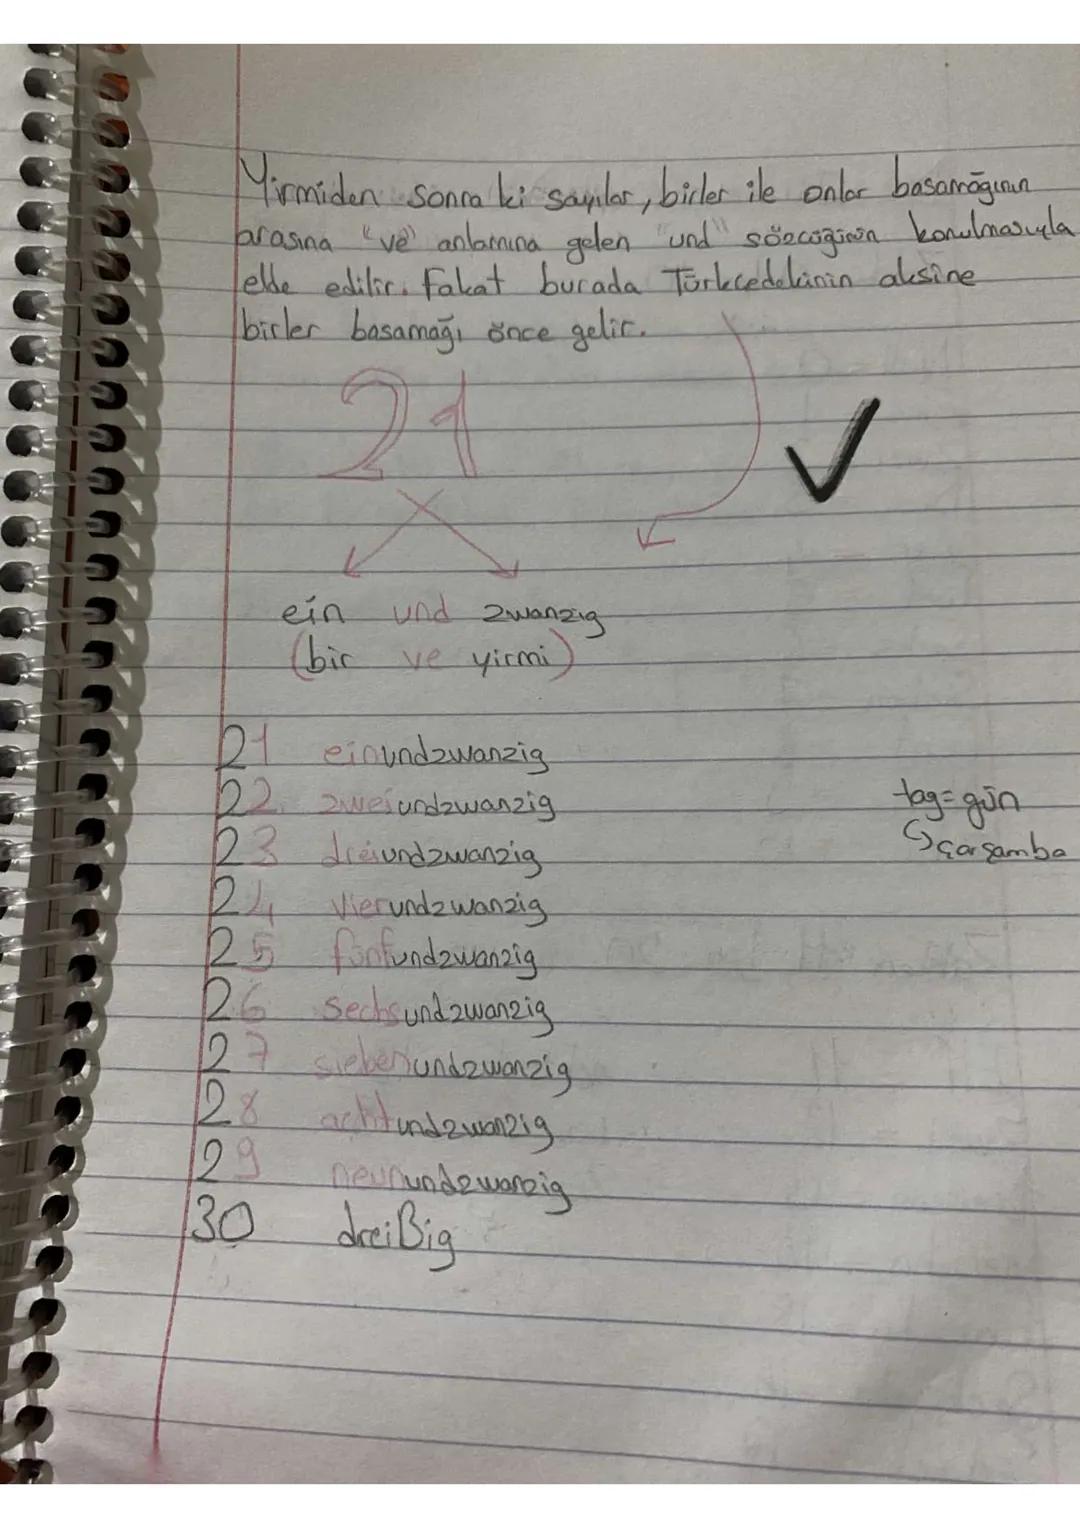 Yirmiden sonra ki sayılar, birler ile onlar basamağının
arasına "ve" anlamına gelen "und" sözcüğünün konulmasıyla
elde edilir. Fakat burada Türkcedekinin aksine
birler basamağı önce gelir.
21
ein und zwanzig
(bir ve yirmi)
21 einundzwanzig
22 zweiundzwanzig
23 dreiundzwanzig
24 vierundzwanzig
25 fünfundzwanzig
26 sechsundzwanzig
27 siebenundzwanzig
28 achtundzwanzig
29 neunundzwanzig
30 dreißig
tag=gün
çarşamba